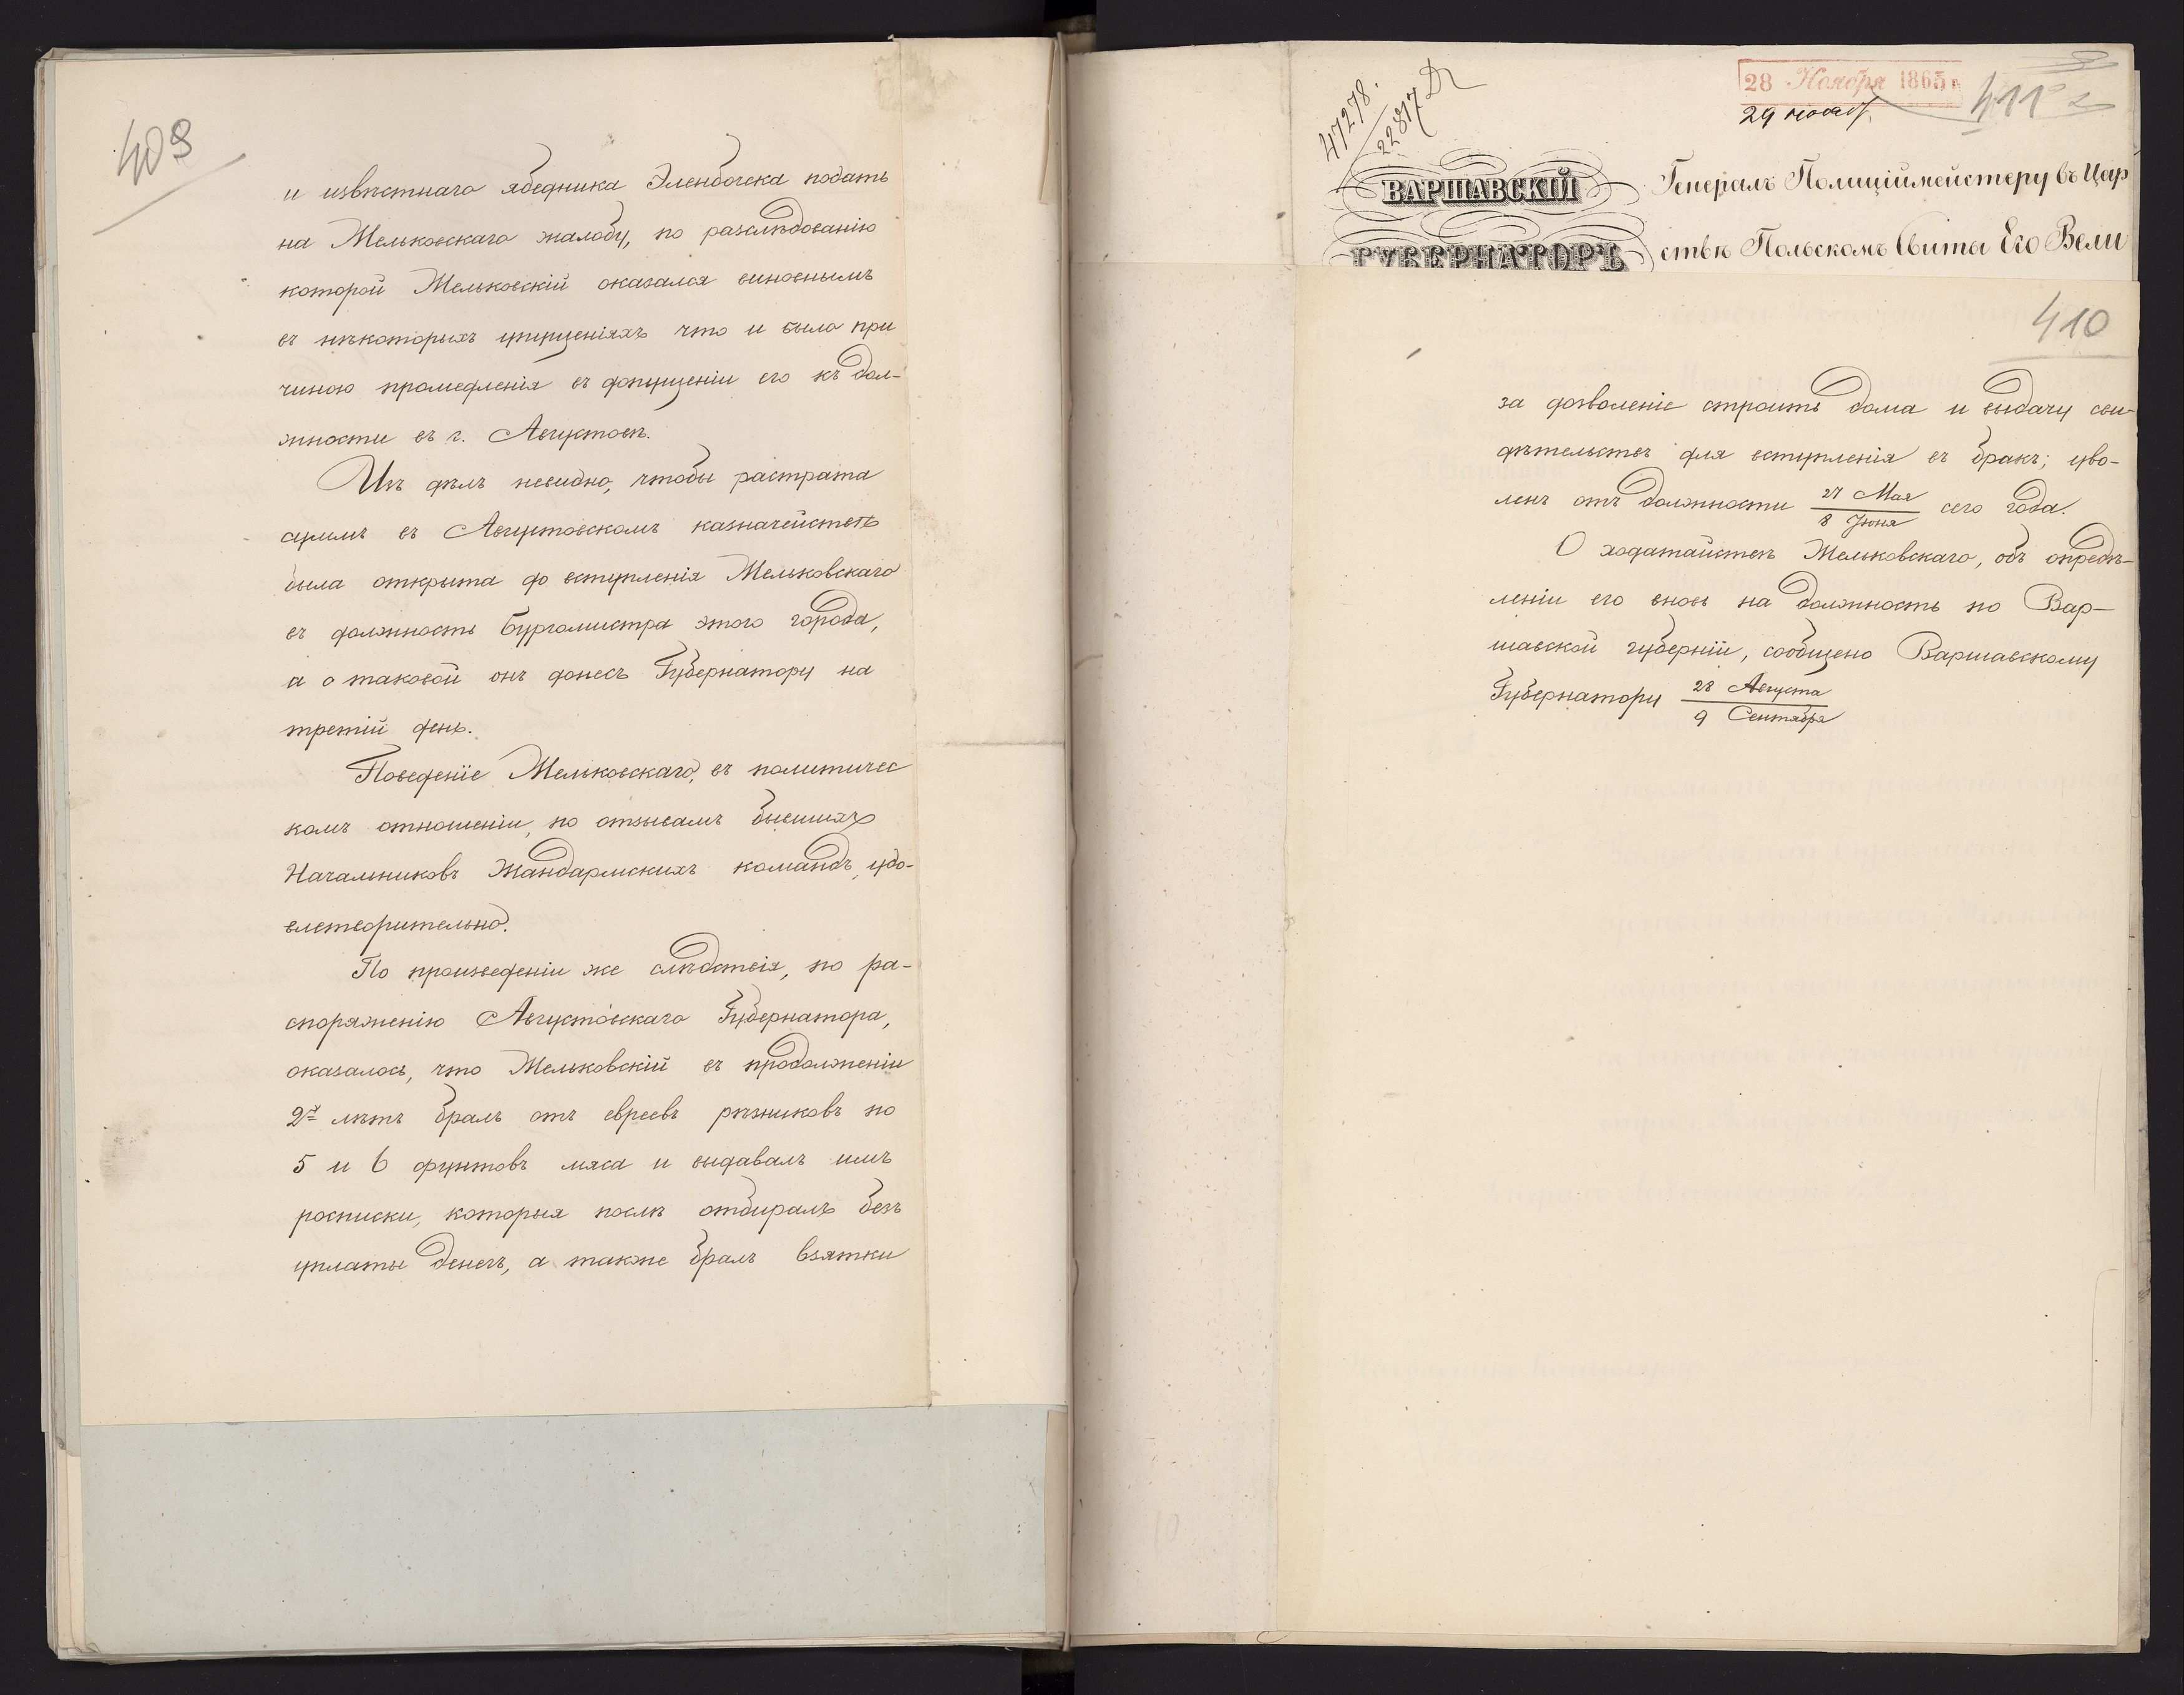 409
и извѣстнаго ябедника Эленбогена подать
на Мельковскаго жалобу, по разслѣдованію
которой Мельковскій оказался виновнымъ
въ нѣкоторыхъ упущеніяхъ что и было при
чиною промедленія въ допущеніи его къ дол-
жности въ г. Августовѣ.
Изъ дѣлъ невидно, чтобы растрата
суммъ въ Августовскомъ казначействѣ
была открыта до вступленія Мельковскаго
въ должность Бургомистра этого города,
а о таковой онъ донесъ Губернатору на
третій день.
Поведеніе Мельковскаго, въ политичес
комъ отношеніи, по отзывамъ бывшихъ
Начальниковъ Жандармскихъ командъ, удо-
влетворительно.
По произведеніи же слѣдствія, по ра-
споряженію Августовскаго Губернатора,
оказалось, что Мельковскій въ продолженіи
2х лѣтъ бралъ отъ евреевъ рѣзниковъ по
5 и 6 фунтовъ мяса и выдавалъ имъ
росписки, которыя послѣ отбиралъ безъ
уплаты денегъ, а также бралъ взятки
47278.
22817
28 Ноября 1865 г.
29 нояб.
411
ВАРШАВСКІЙ
ГУБЕРНАТОРЪ
Генералъ Полиціймейстеру въ Цар
ствѣ Польскомъ Свиты Его Вели
410
за дозволеніе строить дома и выдачу сви-
дѣтельствъ для вступленія въ бракъ; уво-
ленъ отъ должности 27 Мая / 8 Іюня сего года.
О ходатайствѣ Мельковскаго, объ опредѣ-
леніи его вновь на должность по Вар-
шавской губерніи, сообщено Варшавскому
Губернатору 28 Августа / 9 Сентября